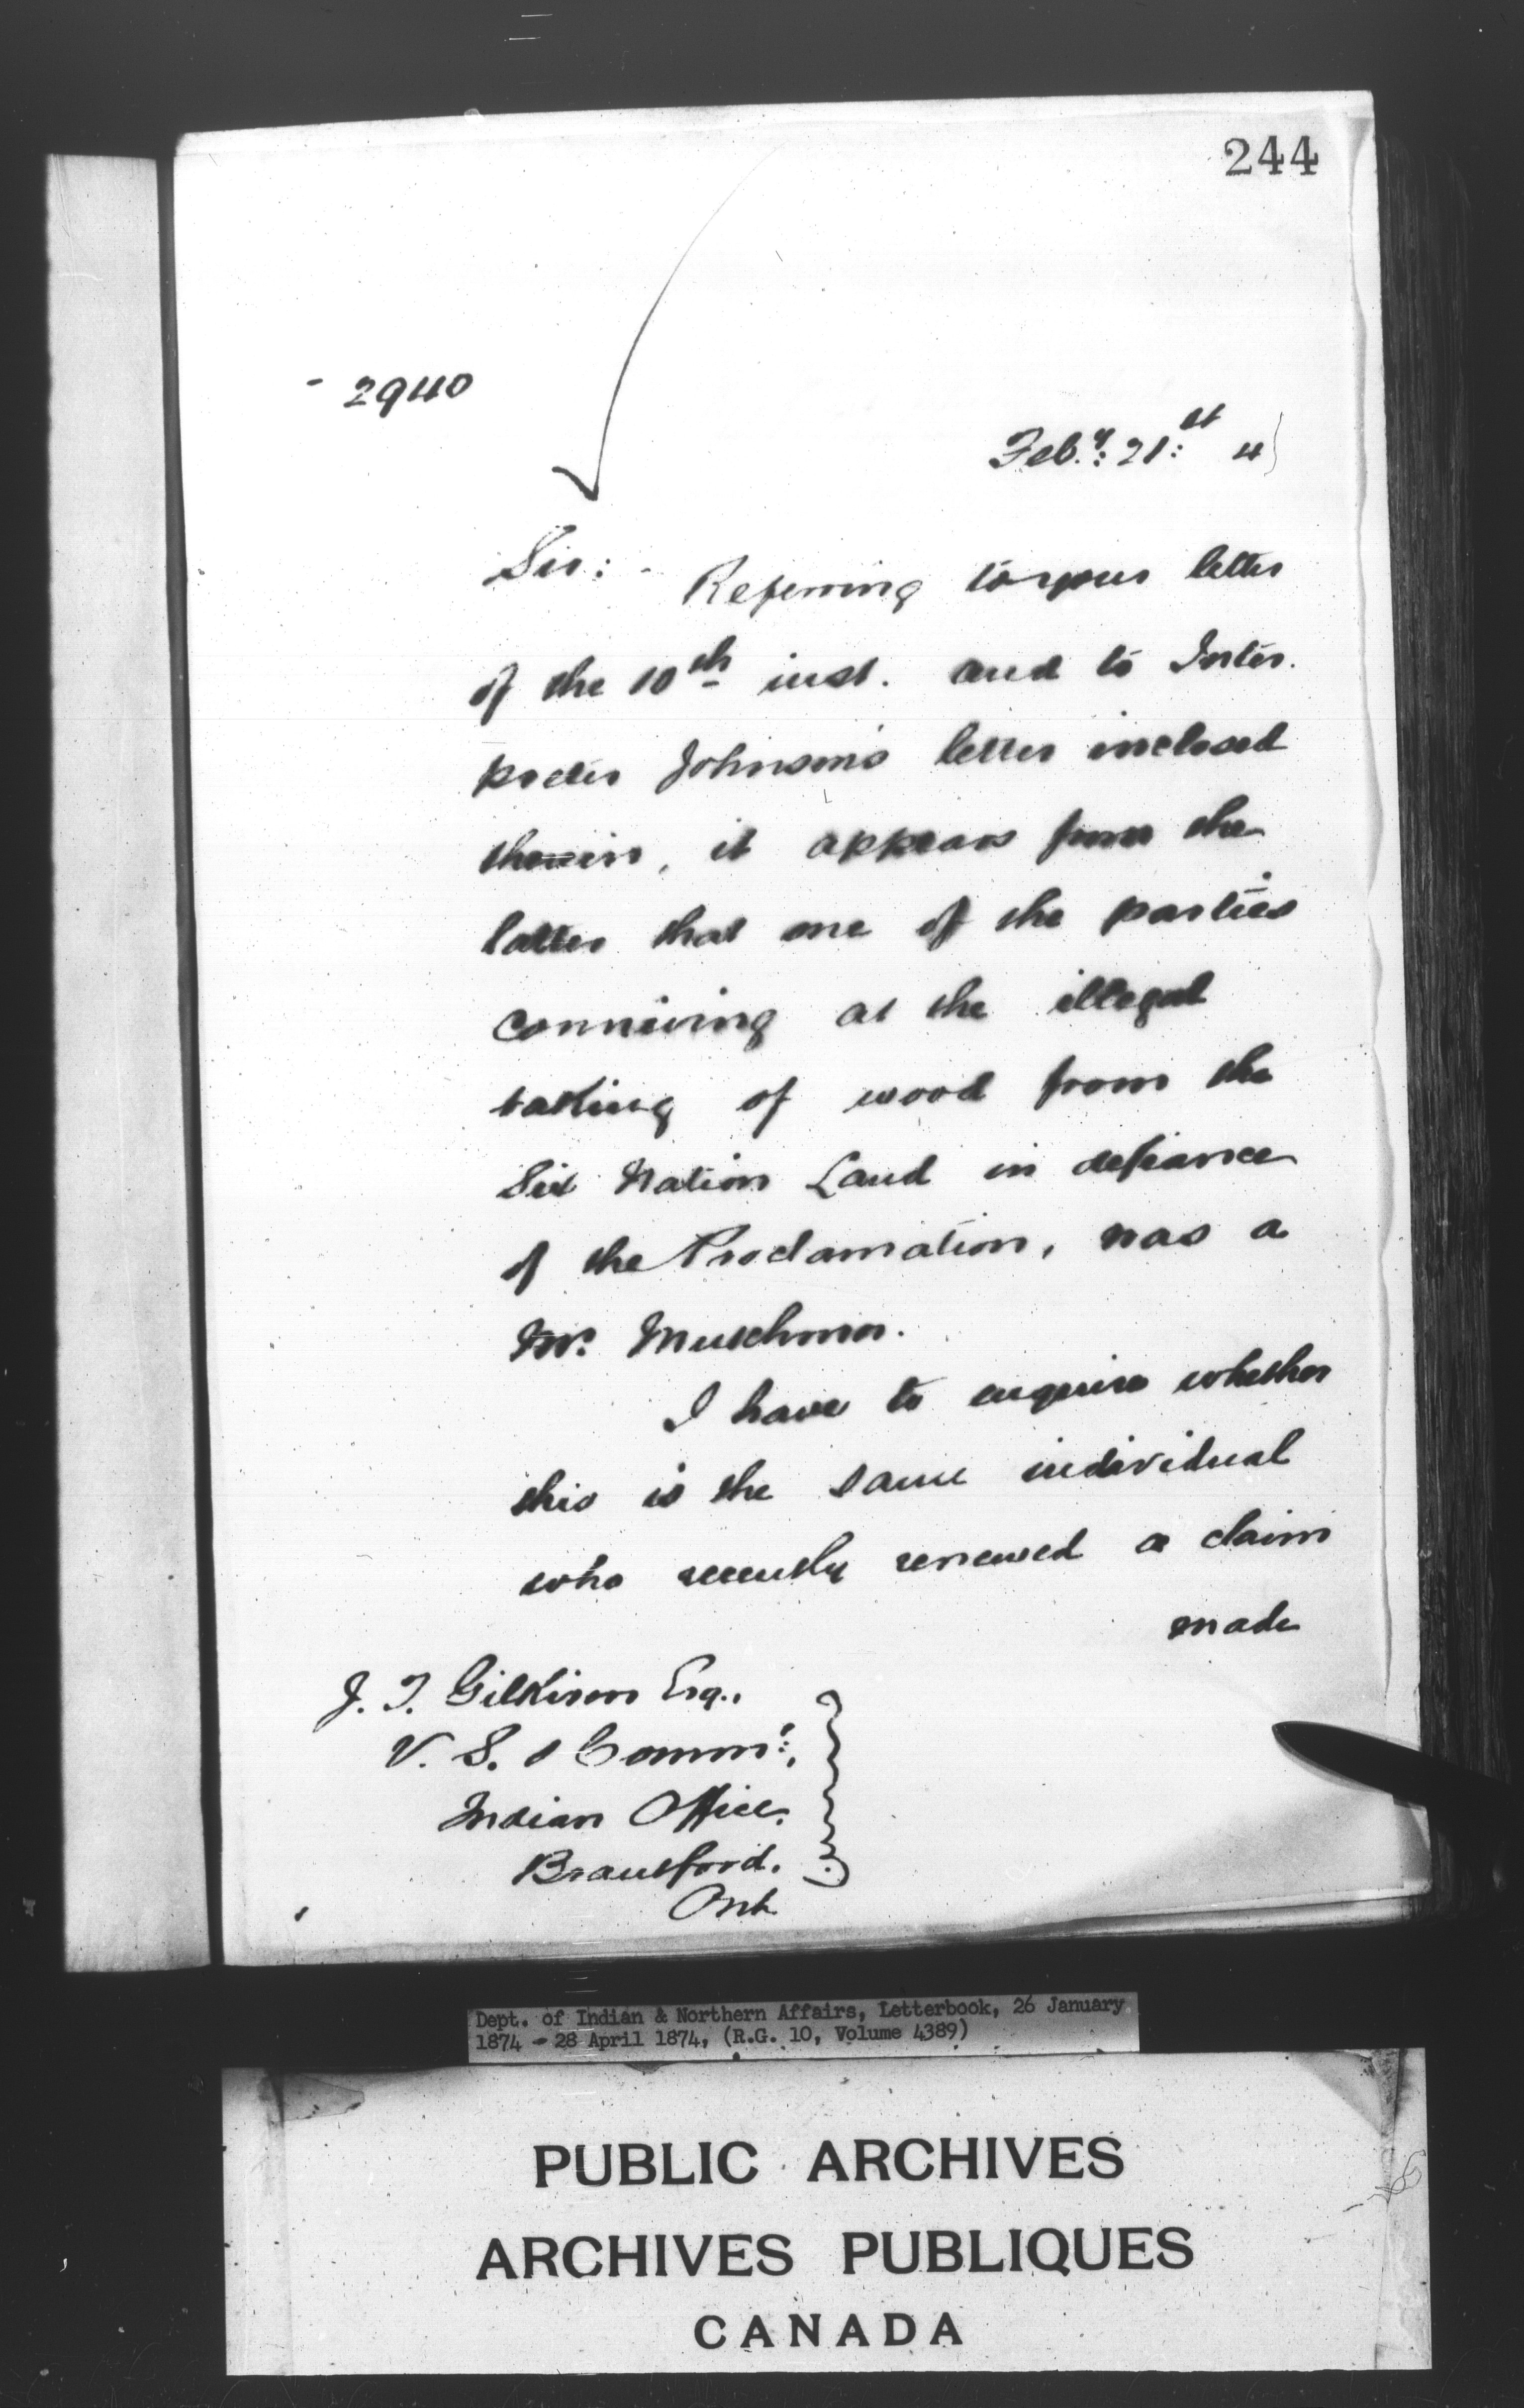 244
2940
Feb.y: 21:st 4
Sir: - Referring to your letter
of the 10th inst. and to Inter.
preter Johnson's letter inclosed
therein, it appears from the
latter that one of the parties
conniving at the illegal
taking of wood from the
Six Nation Land in defiance
of the Proclamation, was a
Mr.
I have to enquire whether
this is the same individual
who recently renewed a claim
made
J. T. Gilkison Esq.,
V. S. & Commr:,
Indian Office,
Brantford.
Ont.
Dept. of Indian & Northern Affairs, Letterbook, 26 January
1874 - 28 April 1874, (R.G. 10, Volume 4389)
PUBLIC ARCHIVES
ARCHIVES PUBLIQUES
CANADA